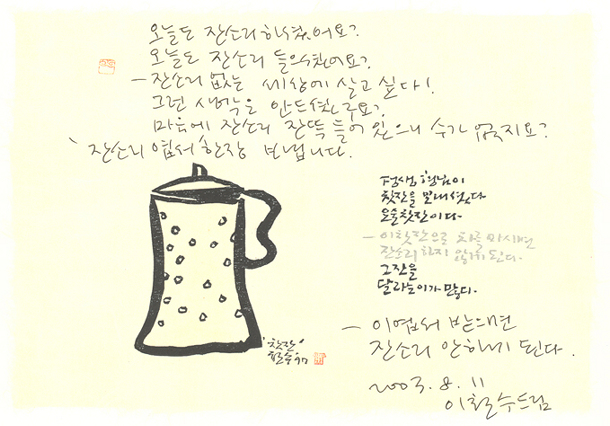 오늘도 잔소리 하셨어요?
오늘도 잔소리 들으셨어요?
- 잔소리 없는 세상에 살고 싶다!
그런 생각은 안 드셨구요?
마음에 잔소리 잔뜩 들어 있으니 수가 없지요?
잔소리 엽서 한장 보냅니다.
평생, 형님이
찻잔을 보내셨다
요술찻잔이다
- 이 찻잔으로 차를 마시면
잔소리 하지 않게 된다.
그 잔을
달라는 이가 많다.
'찻잔'
철수 '97
- 이 엽서 받으면
잔소리 안 하게 된다.
2003. 8. 11
이철수 드림